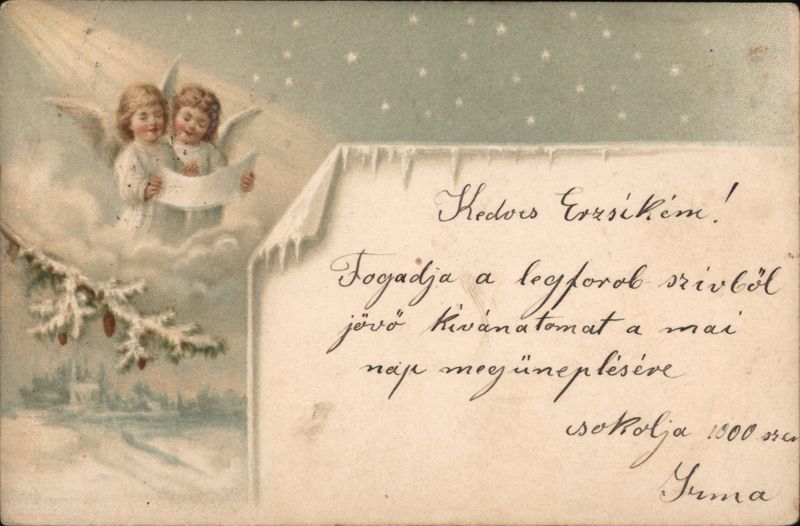 Kedves Erzsikém!
Fogadja a legforob szívből
jövő kívánatomat a mai
nap megünneplésére
csokolja 1000 szer
Irma